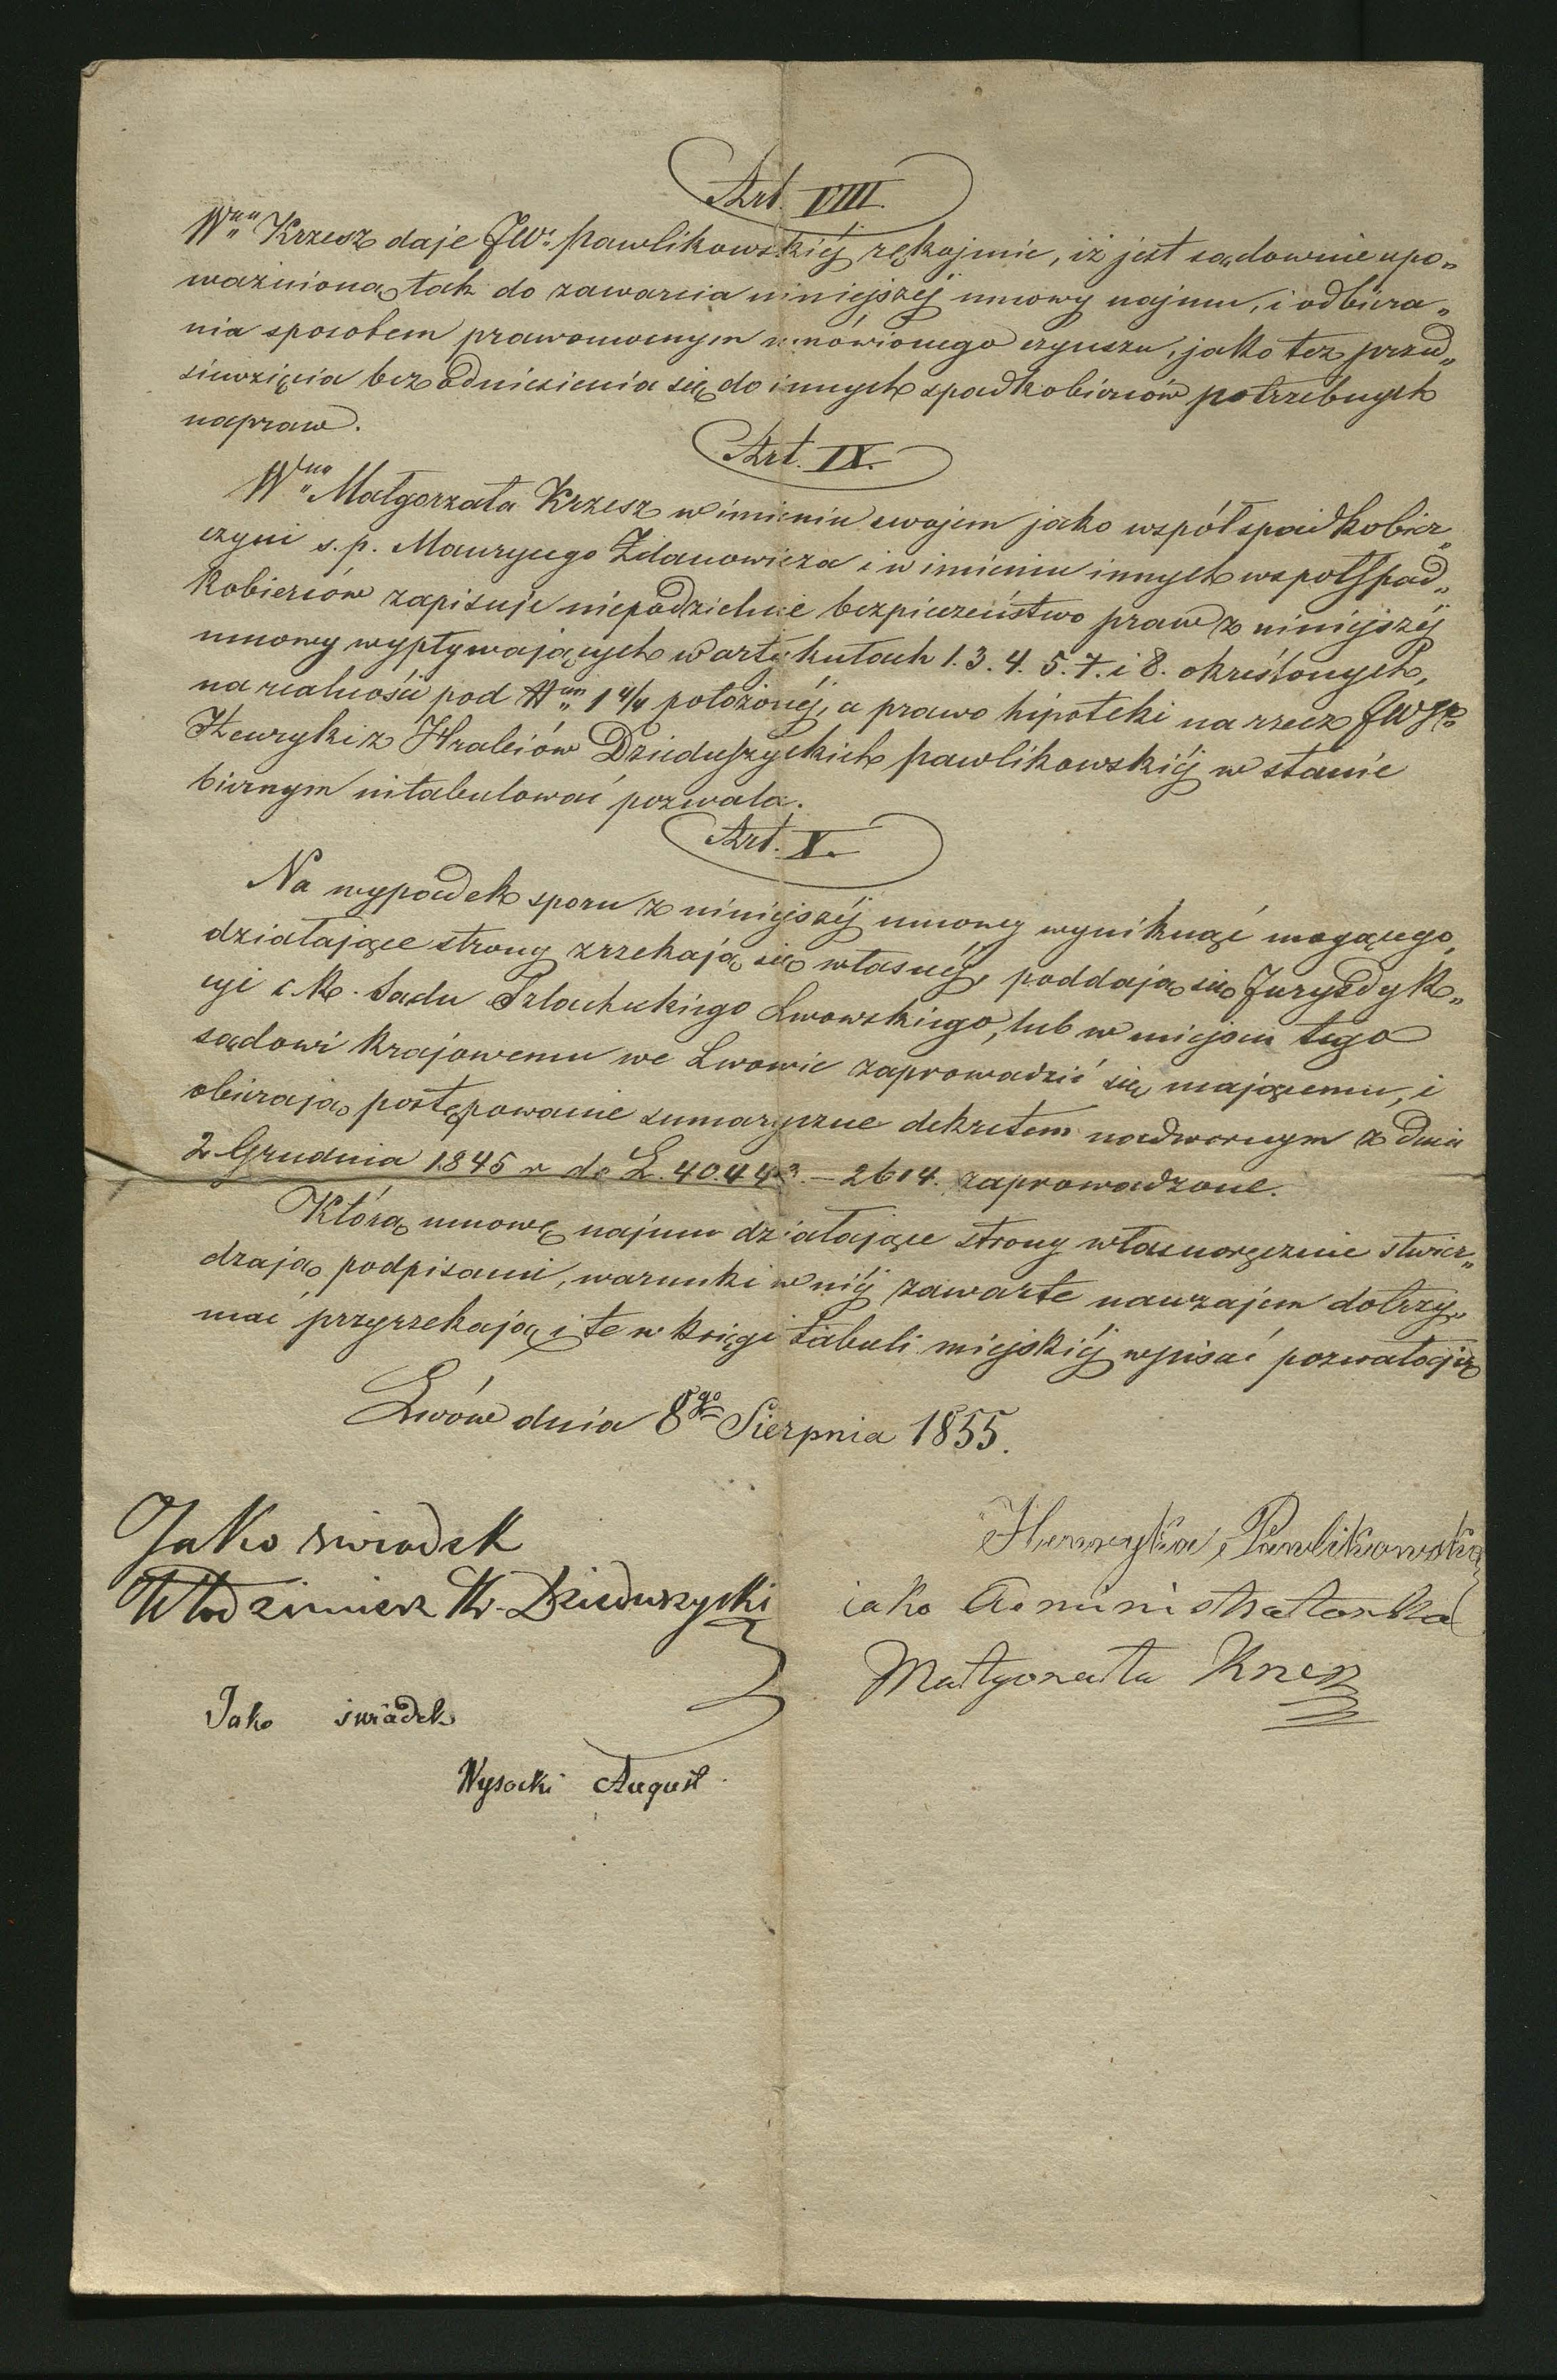 Art. VIII.
Wna Krzesz daje JW. Pawlikowskiéj rękojmie, iż jest sądownie upo„
ważnioną tak do zawarcia niniejszéj umowy najmu, i odbiera„
nia sposobem prawomocnym umówionego czynszu, jako też przed„
siewzięcia bez odniesienia się do innych spadkobierców potrzebnych
napraw.
Art. IX.
Wna Małgorzata Krzesz w imieniu swojem jako współspadkobier„
czyni s.p. Maurycego Zdanowicza i w imieniu innych wspołspad„
kobierców zapisuje niepodzielnie bezpieczeństwo praw z niniejszéj
umowy wypływających w artykułach 1. 3. 4. 5. 7. i 8. określonych,
na realności pod 1 4/4 położonéj, a prawo hipoteki na rzecz JWP
Henryki z Hrabiów Dzieduszyckich Pawlikowskiéj w stanie
biernym intabulować pozwala.
Art. X.
Na wypadek sporu z niniejszéj umowy wyniknąć mogącego,
działające strony zrzekają się własnéj, poddają się Juryzdyk„
cyi c.k. Sądu Szlacheckiego Lwowskiego, lub w miejscu tego
sądowi krajowemu we Lwowie zaprowadzić się mającemu, i
obierają postępowanie sumaryczne dekretem nadwornym z dnia
2 Grudnia 1845 r do L. 40.443. – 2614. zaprowadzone.
Którą umowę najmu działające strony własnoręcznie stwier„
dzają podpisami, warunki w niéj zawarte nawzajem dotrzy„
mać przyrzekają i te w księgi tabuli miejskiéj wpisać pozwalają
Lwów dnia 8go Sierpnia 1855.
Jako swiadek
Włodzimierz Hr. Dzieduszycki
Henryka Pawlikowska
iako Administratorka
Małgorzata Krzesz
Jako świadek
Wysocki August